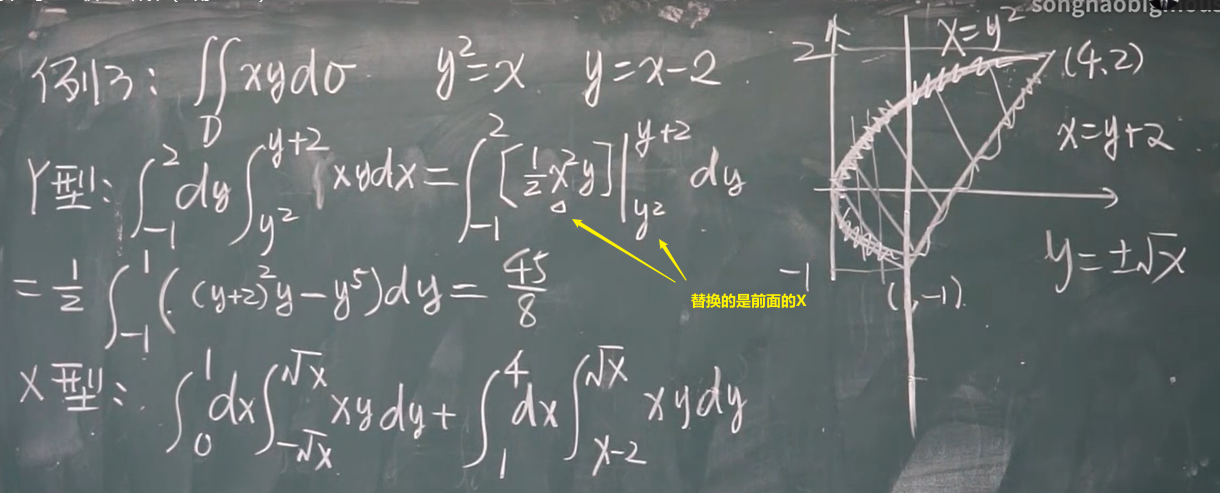 songhaobig
例13: ∬_D xydσ y²=x y=x-2
Y型: ∫_{-1}^{2} dy ∫_{y²}^{y+2} xydx = ∫_{-1}^{2} [½x²y] |_{y²}^{y+2} dy
= ½ ∫_{-1}^{1} ((y+2)²y - y⁵) dy = 45/8
替换的是前面的X
X型: ∫_{0}^{1} dx ∫_{-√x}^{√x} xydy + ∫_{1}^{4} dx ∫_{x-2}^{√x} xydy
2
x=y²
(4,2)
x=y+2
-1
(,-1)
y=±√x